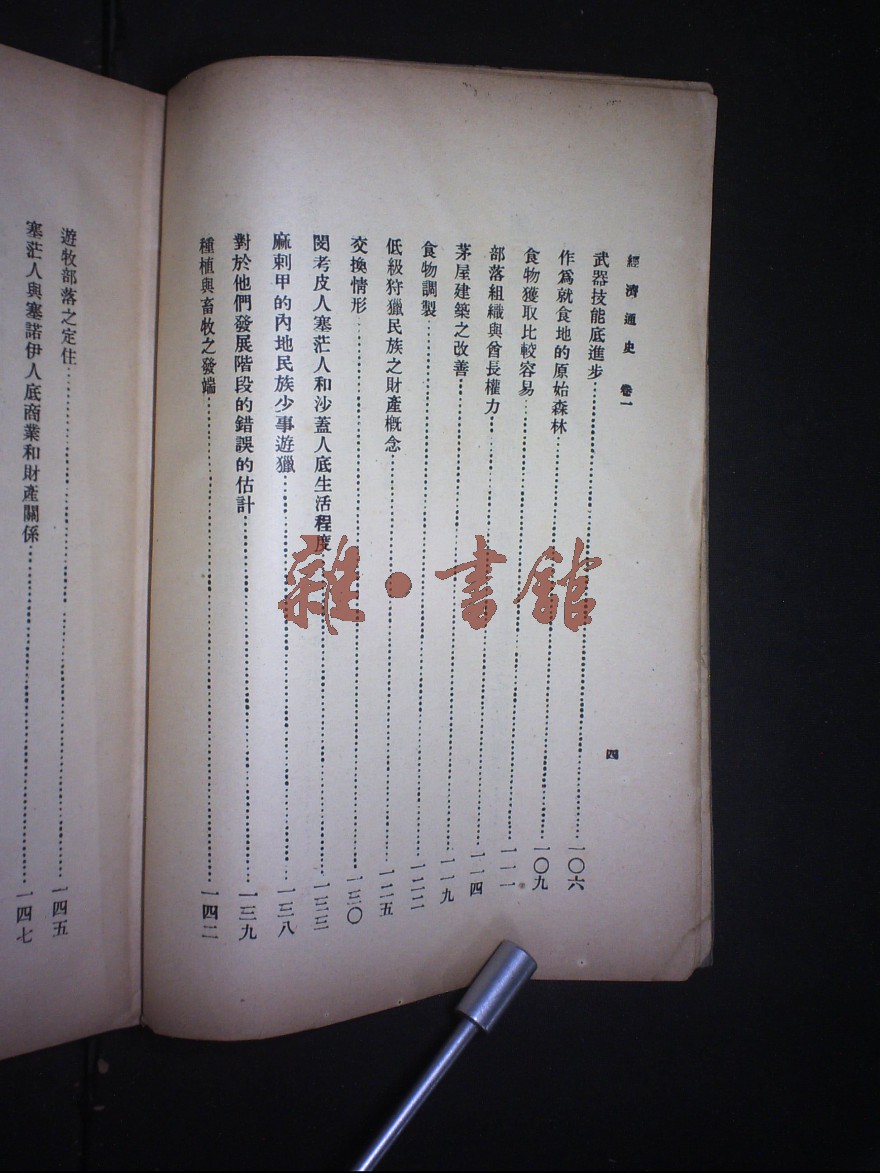 經濟通史 卷一
四
武器技能底進步……一〇六
作為就食地的原始森林……一〇九
食物獲取比較容易……一一一
部落組織與酋長權力……一一四
茅屋建築之改善……一一九
食物調製……一二二
低級狩獵民族之財產概念……一二五
交換情形……一三〇
閔考皮人塞茫人和沙蓋人底生活程度……一三三
麻剌甲的內地民族少事遊獵……一三八
對於他們發展階段的錯誤的估計……一三九
種植與畜牧之發端……一四二
遊牧部落之定住……一四五
塞茫人與塞諾伊人底商業和財產關係……一四七
雜·書館